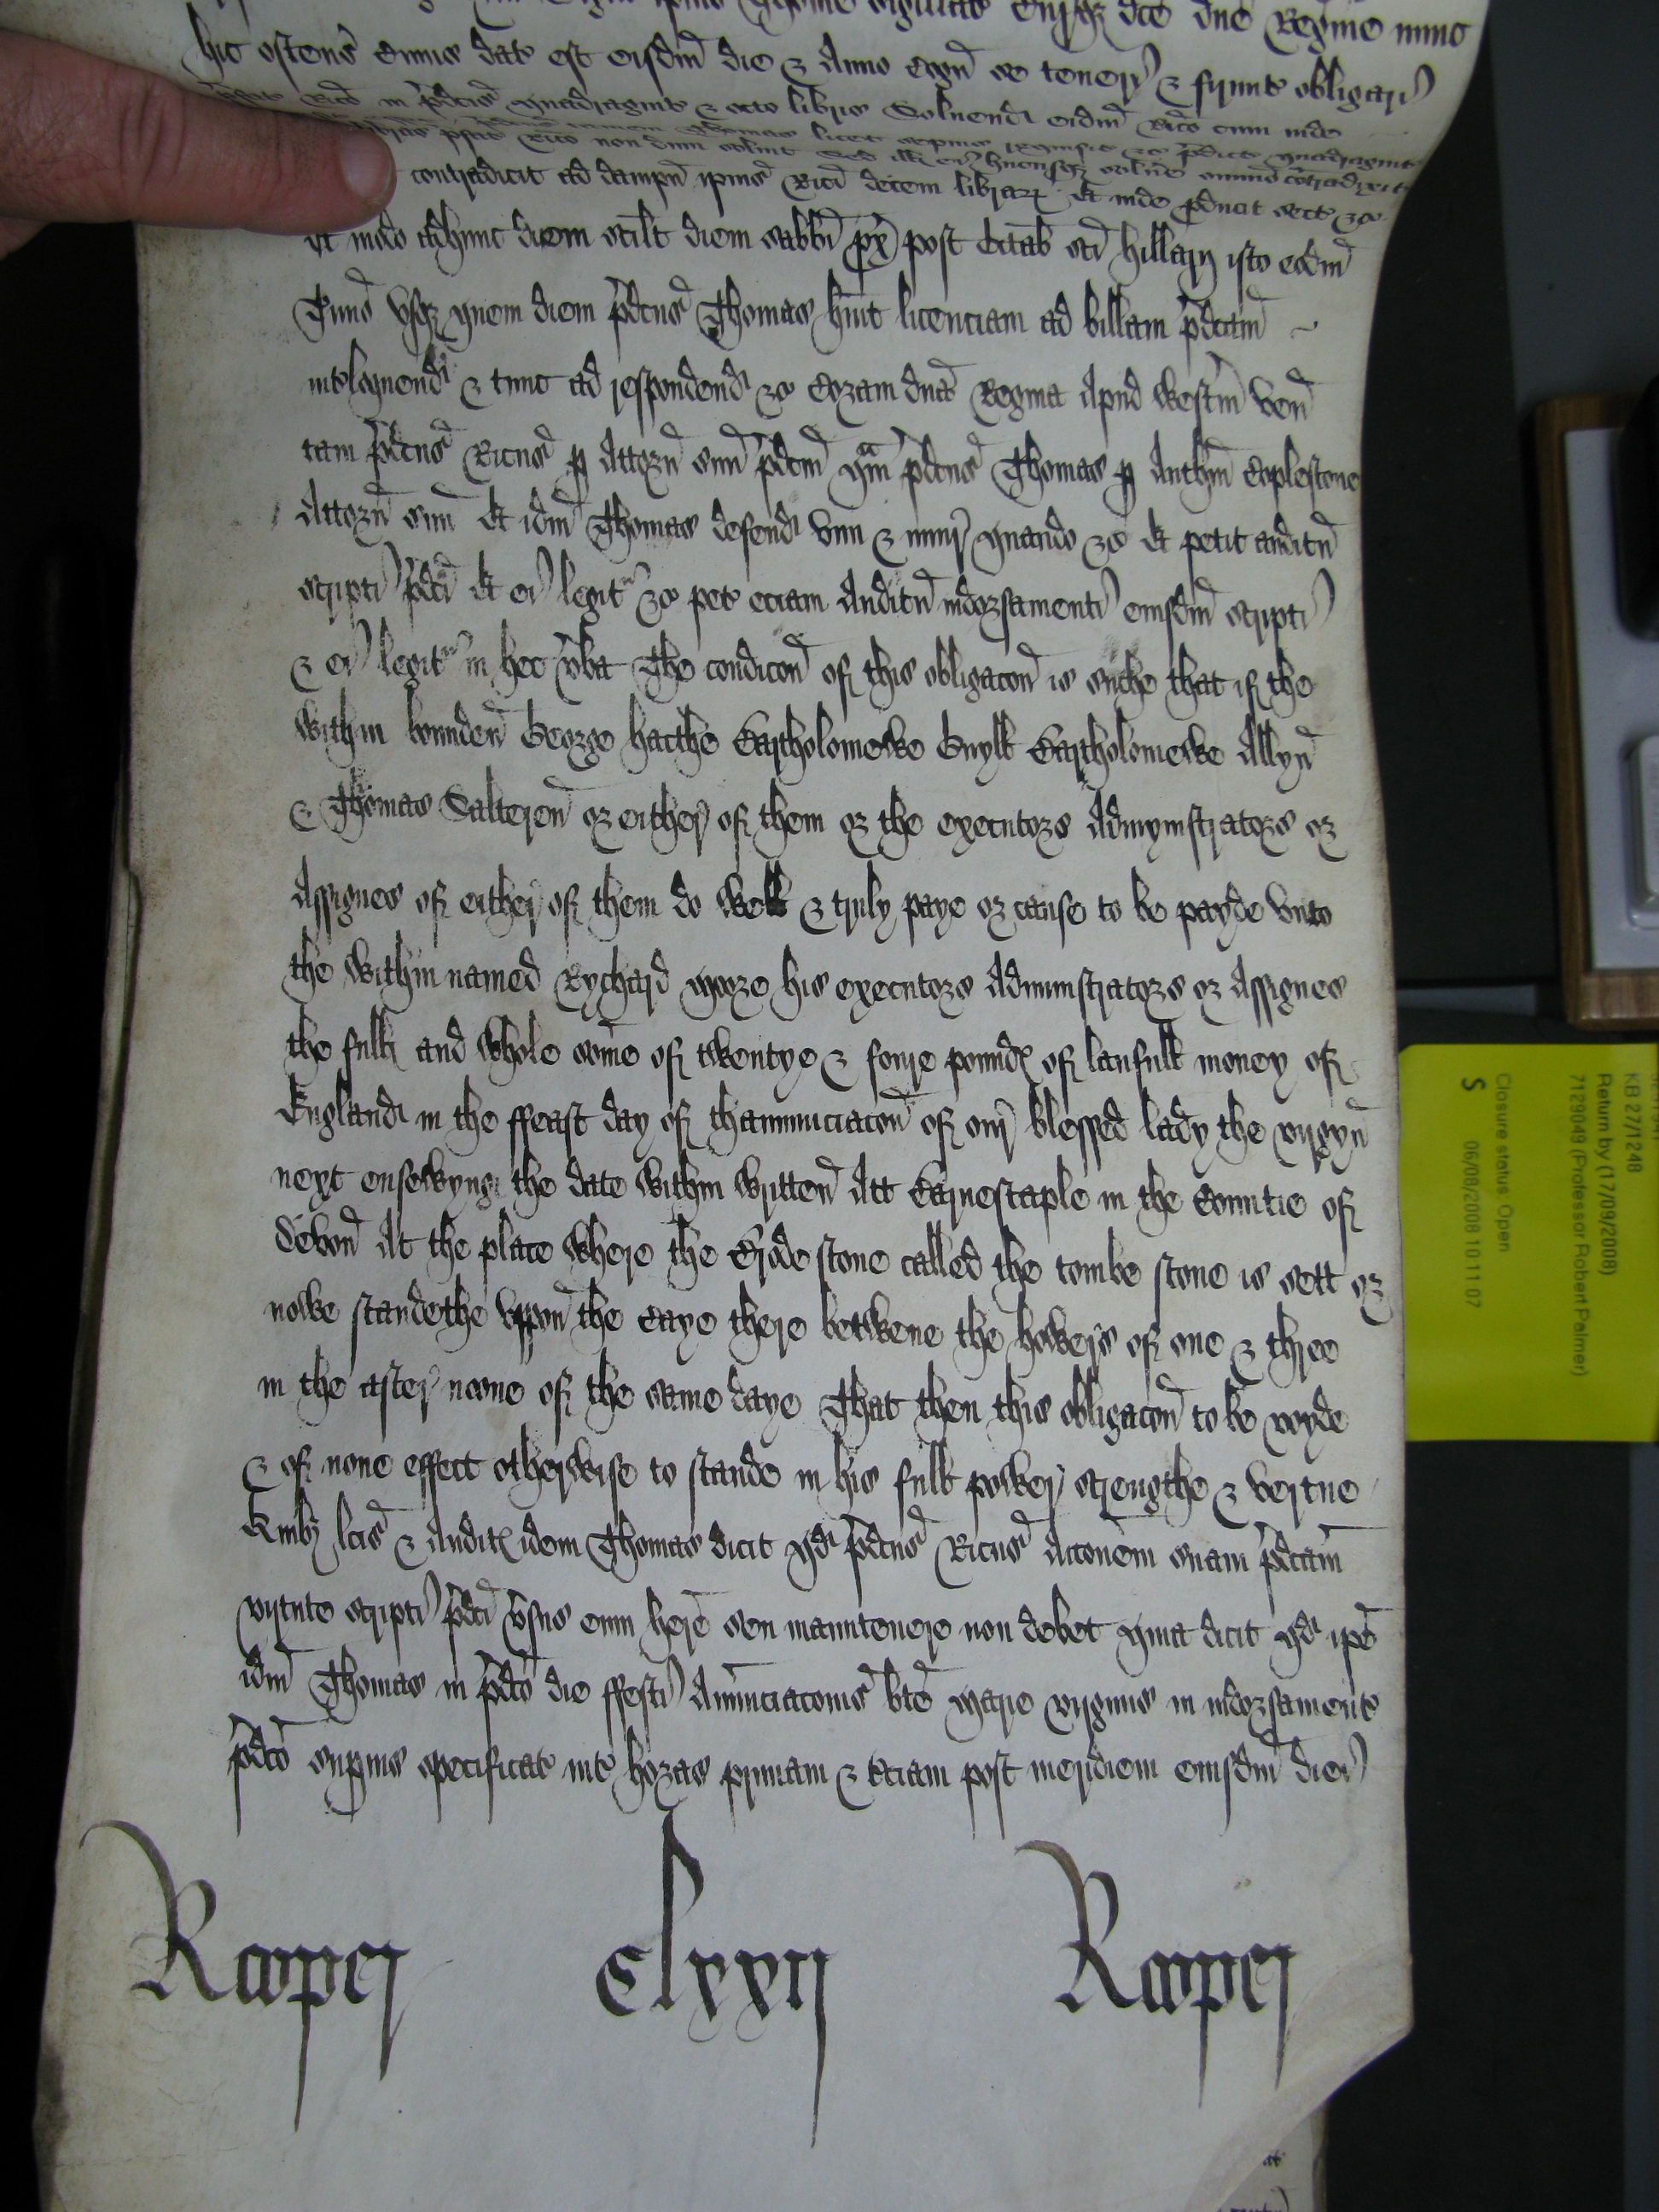 sigillat Cujusq dce dne Regine nunc
hic ostens Cuius dat est eisdm die & Anno Cogn se teneri & firmit obligari
Rico in pdcis quadragint & octo libris Solvend eidm Rico cum inde
Thomas licet sepius requisit &c pdict quadraginta
libras pfat Rico non dum solvit Sed ill ei hucusq solvere omnino contradixit
contradicit ad dampn ipius Rici decem librar Et inde pducit sect &c
Et modo adhunc diem scilt diem sabbi px post Octab sci Hillarij isto eodm
Tmio usq quem diem pdcus Thomas huit licenciam ad billam pdcam
intloquend & tunc ad respondend &c Coram dna Regina Apud Westm ven
tam pdcus Ricus p Attorn suu pdcm qam pdcus Thomas p Anthm Coplestone
Attorn suu Et idm Thomas defend vim & iniur quando &c Et petit auditu
scripti pdci Et ei legit &c pet eciam Auditu indorsamenti eiusdm scripti
& ei legit in hec vba The condicon of this obligacon is suche that if the
within bounden George Hacthe Bartholomewe Bartholomewe Allyn
& Thomas Salteren or either of them or the executors Admynistrators or
Assignes of either of them do well & truly paye or cause to be payde unto
the within named Rychard More his executors Administrators or Assignes
the full and whole some of twentye & foure pound of laufull money of
England in the ffeast day of thannunciacon of our blessed lady the virgyn
next ensewyng the date within written Att Barnestaple in the Countie of
Devon At the place where the Brode stone called the tombe stone is sett or
nowe standethe uppon the Caye there betwene the howers of one & three
in the after noone of the same daye That then this obligacon to be voyde
& of none effect otherwise to stande in his full power strengthe & vertue
Quibz lcis & Audit idem Thomas dicit qd pdcus Ricus Accionem suam pdcam
virtute scripti pdci vsus eum here seu manutenere non debet quia dicit qd ipe
idm Thomas in pdco die ffesti Annunciaconis bte Marie virginis in indorsamento
pdco supius specificat int horas primam & tciam post meridiem eiusdm diei
Roper clxxij Roper
KB 27/1248
Return by (17/09/2008)
7129049 (Professor Robert Palmer)
Closure status: Open
S 06/08/2008 10:11:07